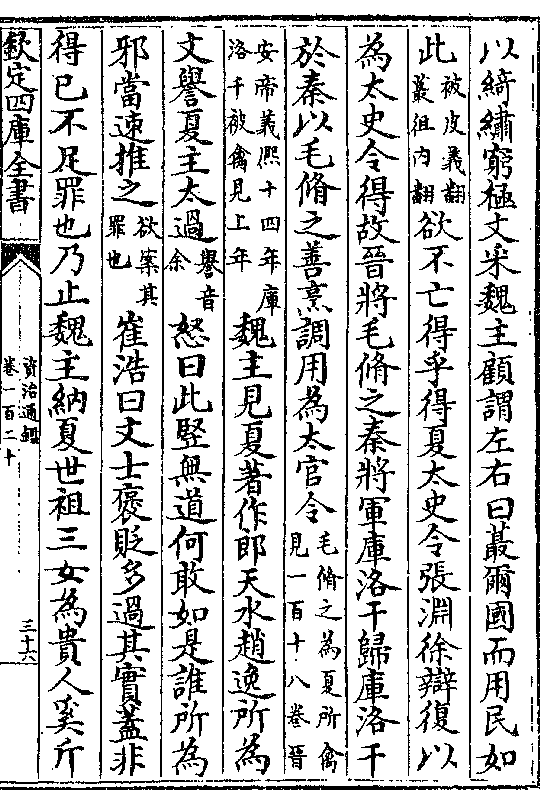 以綺繡窮極文采魏主顧謂左右曰蕞爾國而用民如
此被皮義翻蕞徂内翻欲不亡得乎得夏太史令張淵徐辯復以
為太史令得故晉將毛脩之秦將軍庫洛干歸庫洛干
於秦以毛脩之善烹調用為太官令毛脩之為夏所禽見一百十八卷晉
安帝義熙十四年庫洛干被禽見上年魏主見夏著作郎天水趙逸所為
文譽夏主太過譽音余怒曰此豎無道何敢如是誰所為
邪當速推之欲案其罪也崔浩曰文士褒貶多過其實蓋非
得已不足罪也乃止魏主納夏世祖三女為貴人奚斤
欽定四庫全書
資治通鑑
卷一百二十
三十六